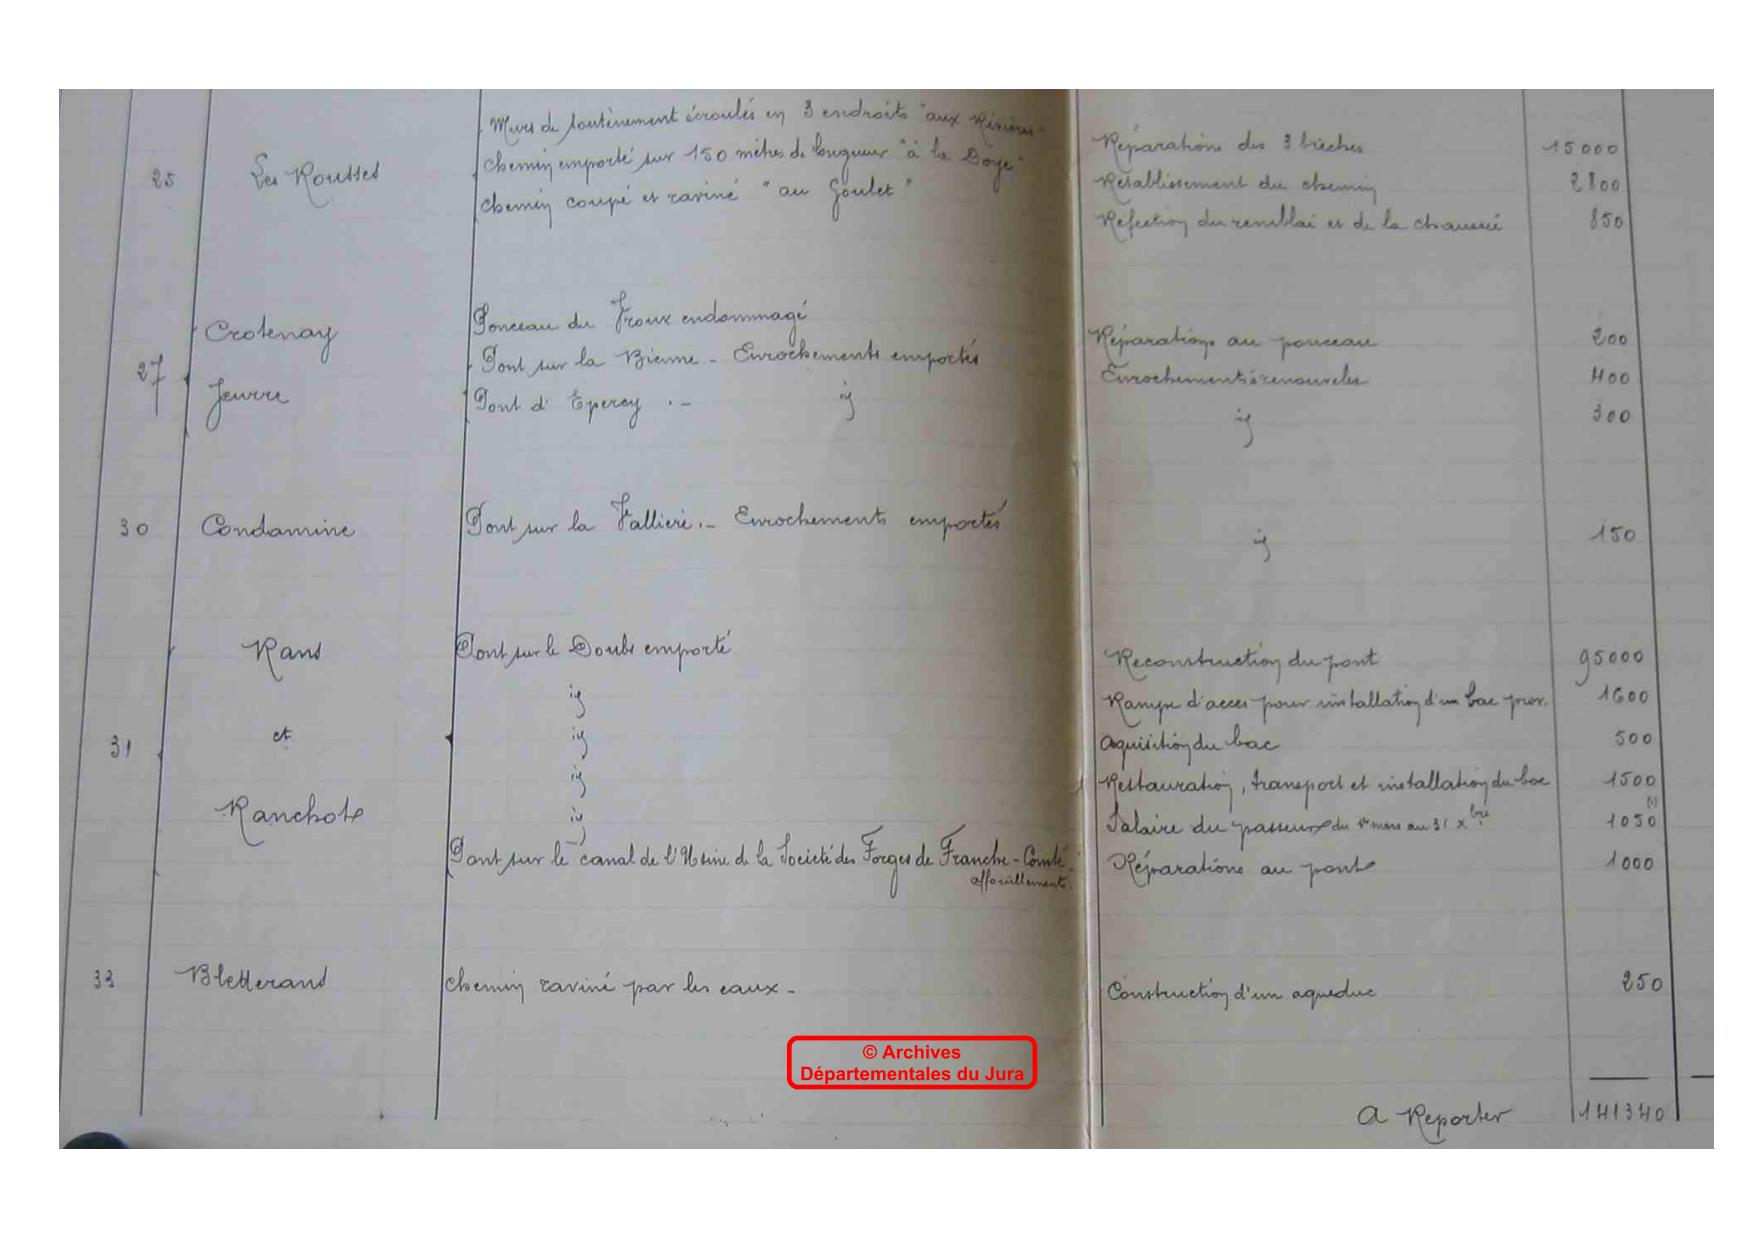 Murs de soutènement écroulés en 3 endroits "aux Rivières" Réparations des 3 brèches 15000
25 Les Rousses chemin emporté sur 150 mètres de longueur "à la Doye" Rétablissement du chemin 2800
chemin coupé et raviné "au Goulet" Réfection du remblai et de la chaussée 850
Crotenay Ponceau du Froux endommagé Réparations au ponceau 200
27 Pont sur la Bienne - Enrochements emportés Enrochements à renouveler 400
Jeurre Pont d'Epercy .- id id 300
30 Condamine Pont sur la Vallière .- Enrochements emportés id 150
Rans Pont sur le Doubs emporté Reconstruction du pont 95000
id Rampe d'accès pour installation d'un bac prov. 1600
31 et id Aquisition du bac 500
id Restauration, transport et installation du bac 1500
Ranchot id Salaire du passeur du 1er mars au 31 Xbre 1050 (1)
Pont sur le canal de l'Usine de la Société des Forges de Franche-Comté Réparations au pont 1000
affouillements.
33 Bletterans chemin raviné par les eaux - Construction d'un aqueduc 250
© Archives
Départementales du Jura
A Reporter 141340